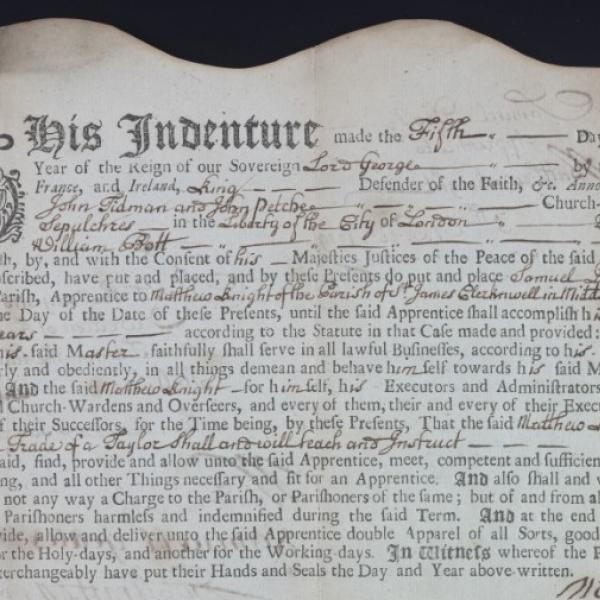 His Indenture made the Fifth Day
Year of the Reign of our Sovereign Lord George by
France, and Ireland, King Defender of the Faith, &c. Anno
John Tidman and John Petchee Church-
Sepulchres in the Liberty of the City of London
William Bott
th, by, and with the Consent of his Majesties Justices of the Peace of the said
bscribed, have put and placed, and by these Presents do put and place Samuel
Parish, Apprentice to Matthew Knight of the Parish of St. James Clerkenwell in Midd
he Day of the Date of these Presents, until the said Apprentice shall accomplish h
ears according to the Statute in that Case made and provided:
his said Master faithfully shall serve in all lawful Businesses, according to his
rly and obediently, in all things demean and behave himself towards his said M
And the said Matthew Knight for himself, his Executors and Administrators
Church-Wardens and Overseers, and every of them, their and every of their Execu
f their Successors, for the Time being, by these Presents, That the said Matthew
Trade of a Taylor shall and will teach and Instruct
aid, find, provide and allow unto the said Apprentice, meet, competent and sufficien
ng, and all other Things necessary and fit for an Apprentice. And also shall and w
not any way a Charge to the Parish, or Parishoners of the same; but of and from al
Parishoners harmless and indemnified during the said Term. And at the end
vide, allow and deliver unto the said Apprentice double Apparel of all Sorts, good
or the Holy-days, and another for the Working-days. In Witness whereof the P
terchangeably have put their Hands and Seals the Day and Year above-written.